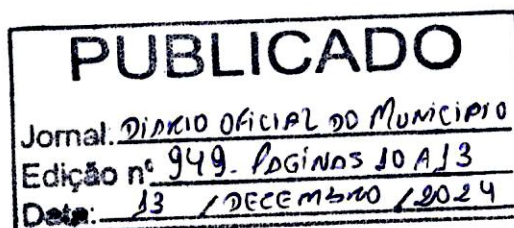 PUBLICADO
Jornal: DIÁRIO OFICIAL DO MUNICIPIO
Edição nº 949. PÁGINAS 10 A 13
Data: 13 / DECEMBRO / 2024